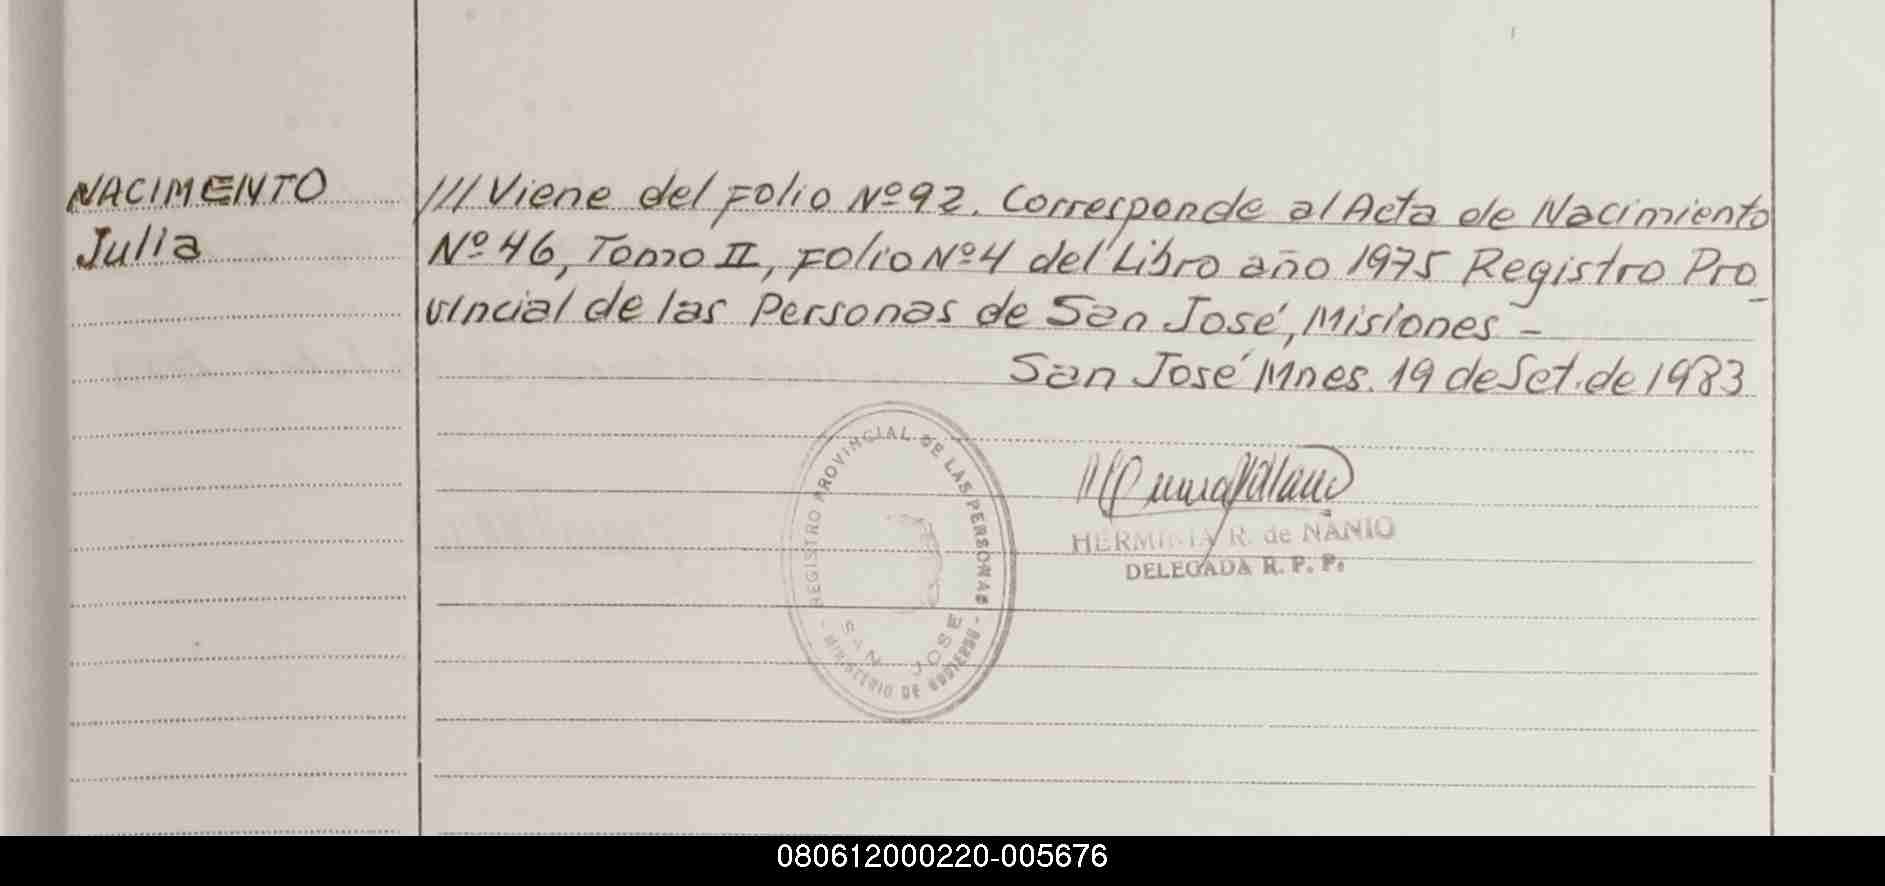 NACIMENTO
Julia
/// Viene del Folio Nº 92. Corresponde al Acta de Nacimiento
Nº 46, Tomo II, Folio Nº 4 del Libro año 1975 Registro Pro_
vincial de las Personas de San José, Misiones -
San José Mnes. 19 de Set. de 1983
REGISTRO PROVINCIAL DE LAS PERSONAS
- MINISTERIO DE GOBIERNO -
SAN JOSE
HERMINIA R. de NANIO
DELEGADA R. P. P.
080612000220-005676